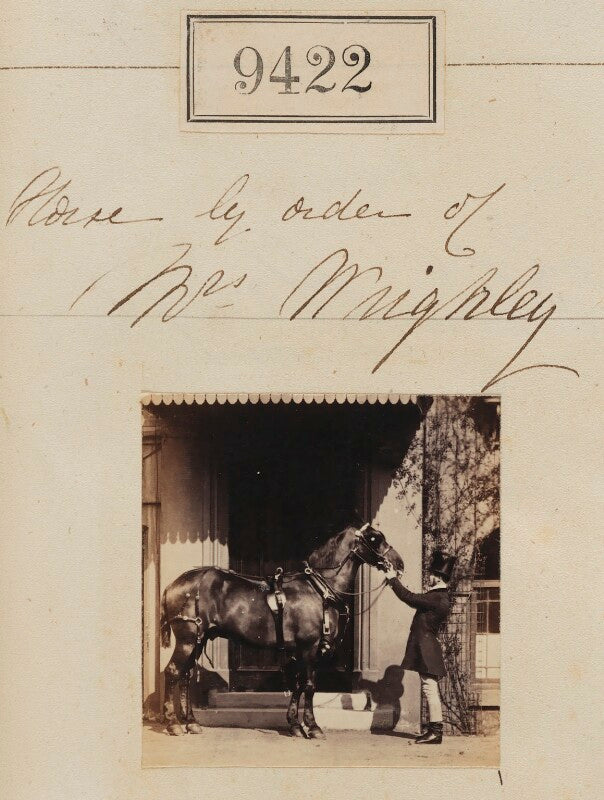 9422
Horse by order of
Mrs Wrighley